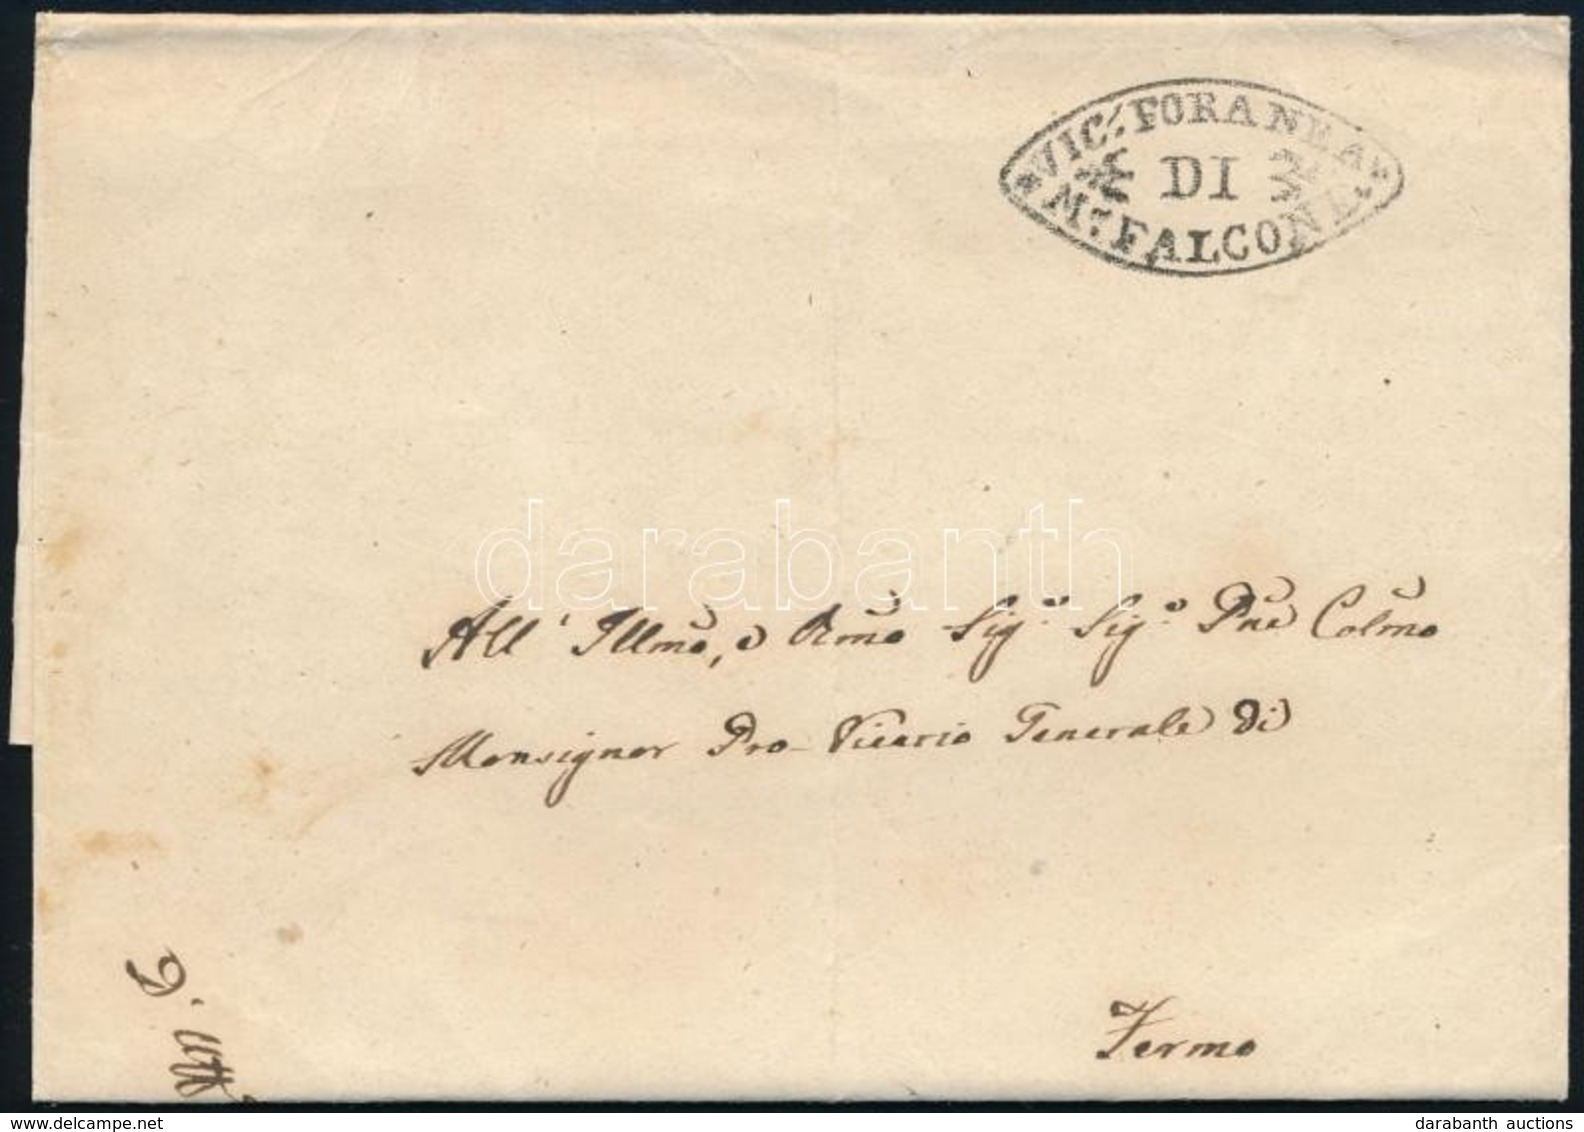 VIC.' FORANEA
DI
M.' FALCONE.
darabanth
All' Illmo, e Rmo Sig.e Sig.e Pne Colmo
Monsignor Pro-Vicario Generale di
Fermo
D'Uff
the-collection.com
darabanth auctions